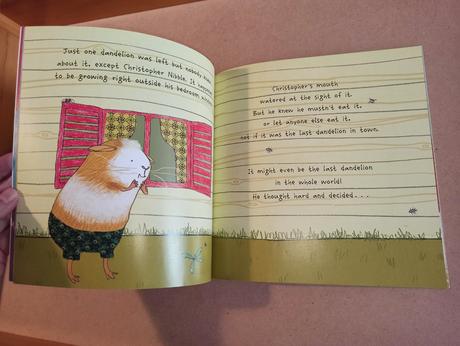 Just one dandelion was left but nobody
about it, except Christopher Nibble. It happened
to be growing right outside his bedroom
Christopher's mouth
watered at the sight of it.
But he knew he mustn't eat it,
or let anyone else eat it,
not if it was the last dandelion in town.
It might even be the last dandelion
in the whole world!
He thought hard and decided . . .